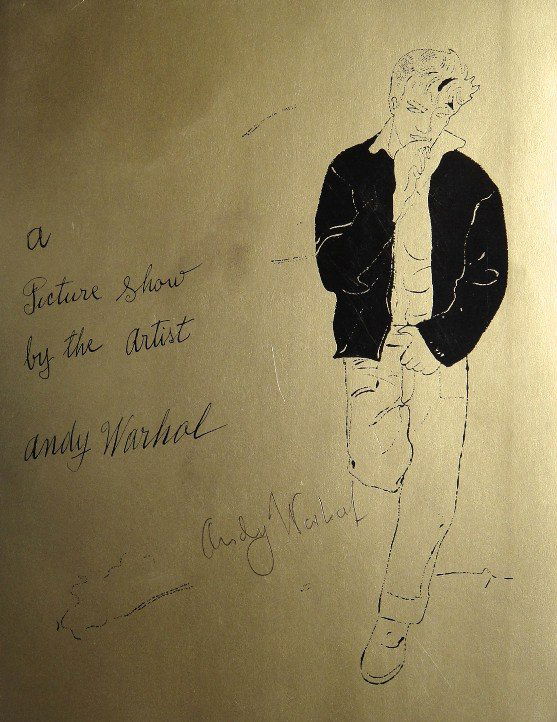 a
Picture Show
by the Artist
andy Warhol
Andy Warhol